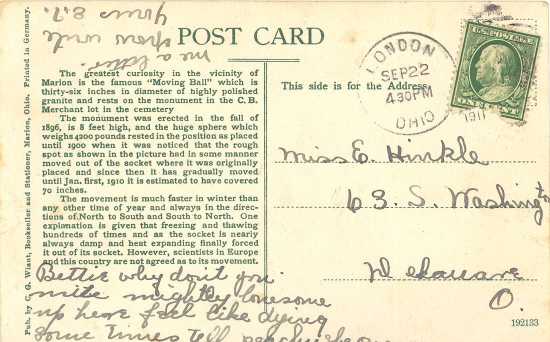 POST CARD
The greatest curiosity in the vicinity of
Marion is the famous "Moving Ball" which is
thirty-six inches in diameter of highly polished
granite and rests on the monument in the C.B.
Merchant lot in the cemetery
The monument was erected in the fall of
1896, is 8 feet high, and the huge sphere which
weighs 4200 pounds rested in the position as placed
until 1900 when it was noticed that the rough
spot as shown in the picture had in some manner
moved out of the socket where it was originally
placed and since then it has gradually moved
until Jan. first, 1910 it is estimated to have covered
70 inches.
The movement is much faster in winter than
any other time of year and always in the direc-
tions of North to South and South to North. One
explanation is given that freezing and thawing
hundreds of times and as the socket is nearly
always damp and heat expanding finally forced
it out of its socket. However, scientists in Europe
and this country are not agreed as to its movement.
Bettie why don't you
write mightly lonesome
up here feel like dying
some times tell
me a letter
now write
yours E.T.
Pub. by C. G. Wiant, Bookseller and Stationer, Marion, Ohio. Printed in Germany.
This side is for the Address
LONDON
SEP 22
4 30 PM
1911
OHIO
U.S. POSTAGE
ONE CENT
Miss E. Hinkle
63. S. Washington
Delaware
O.
192133